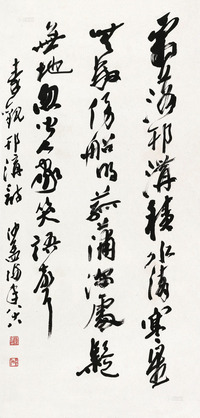 霜落邗溝積水清寒星
無數傍船明菰蒲深處疑
無地忽有人家笑語聲
秦觀邗溝詩 沙孟海年八